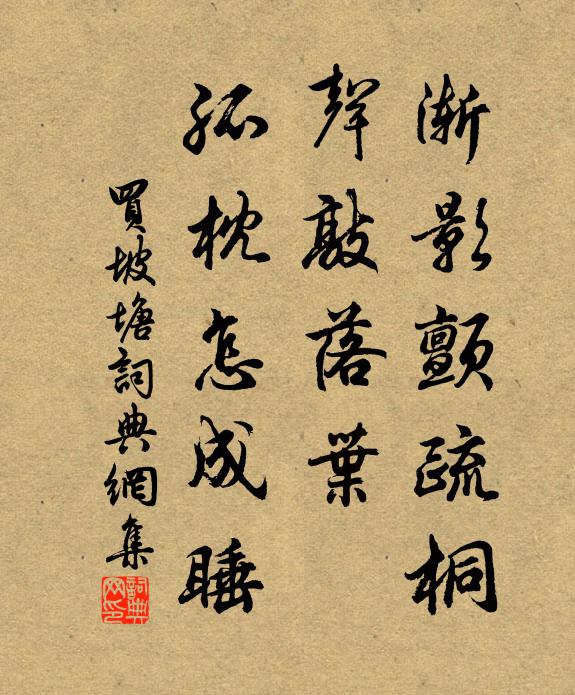 漸影顫疏桐
聲敲落葉
孤枕怎成睡
買坡塘詞典網集
詞典网印